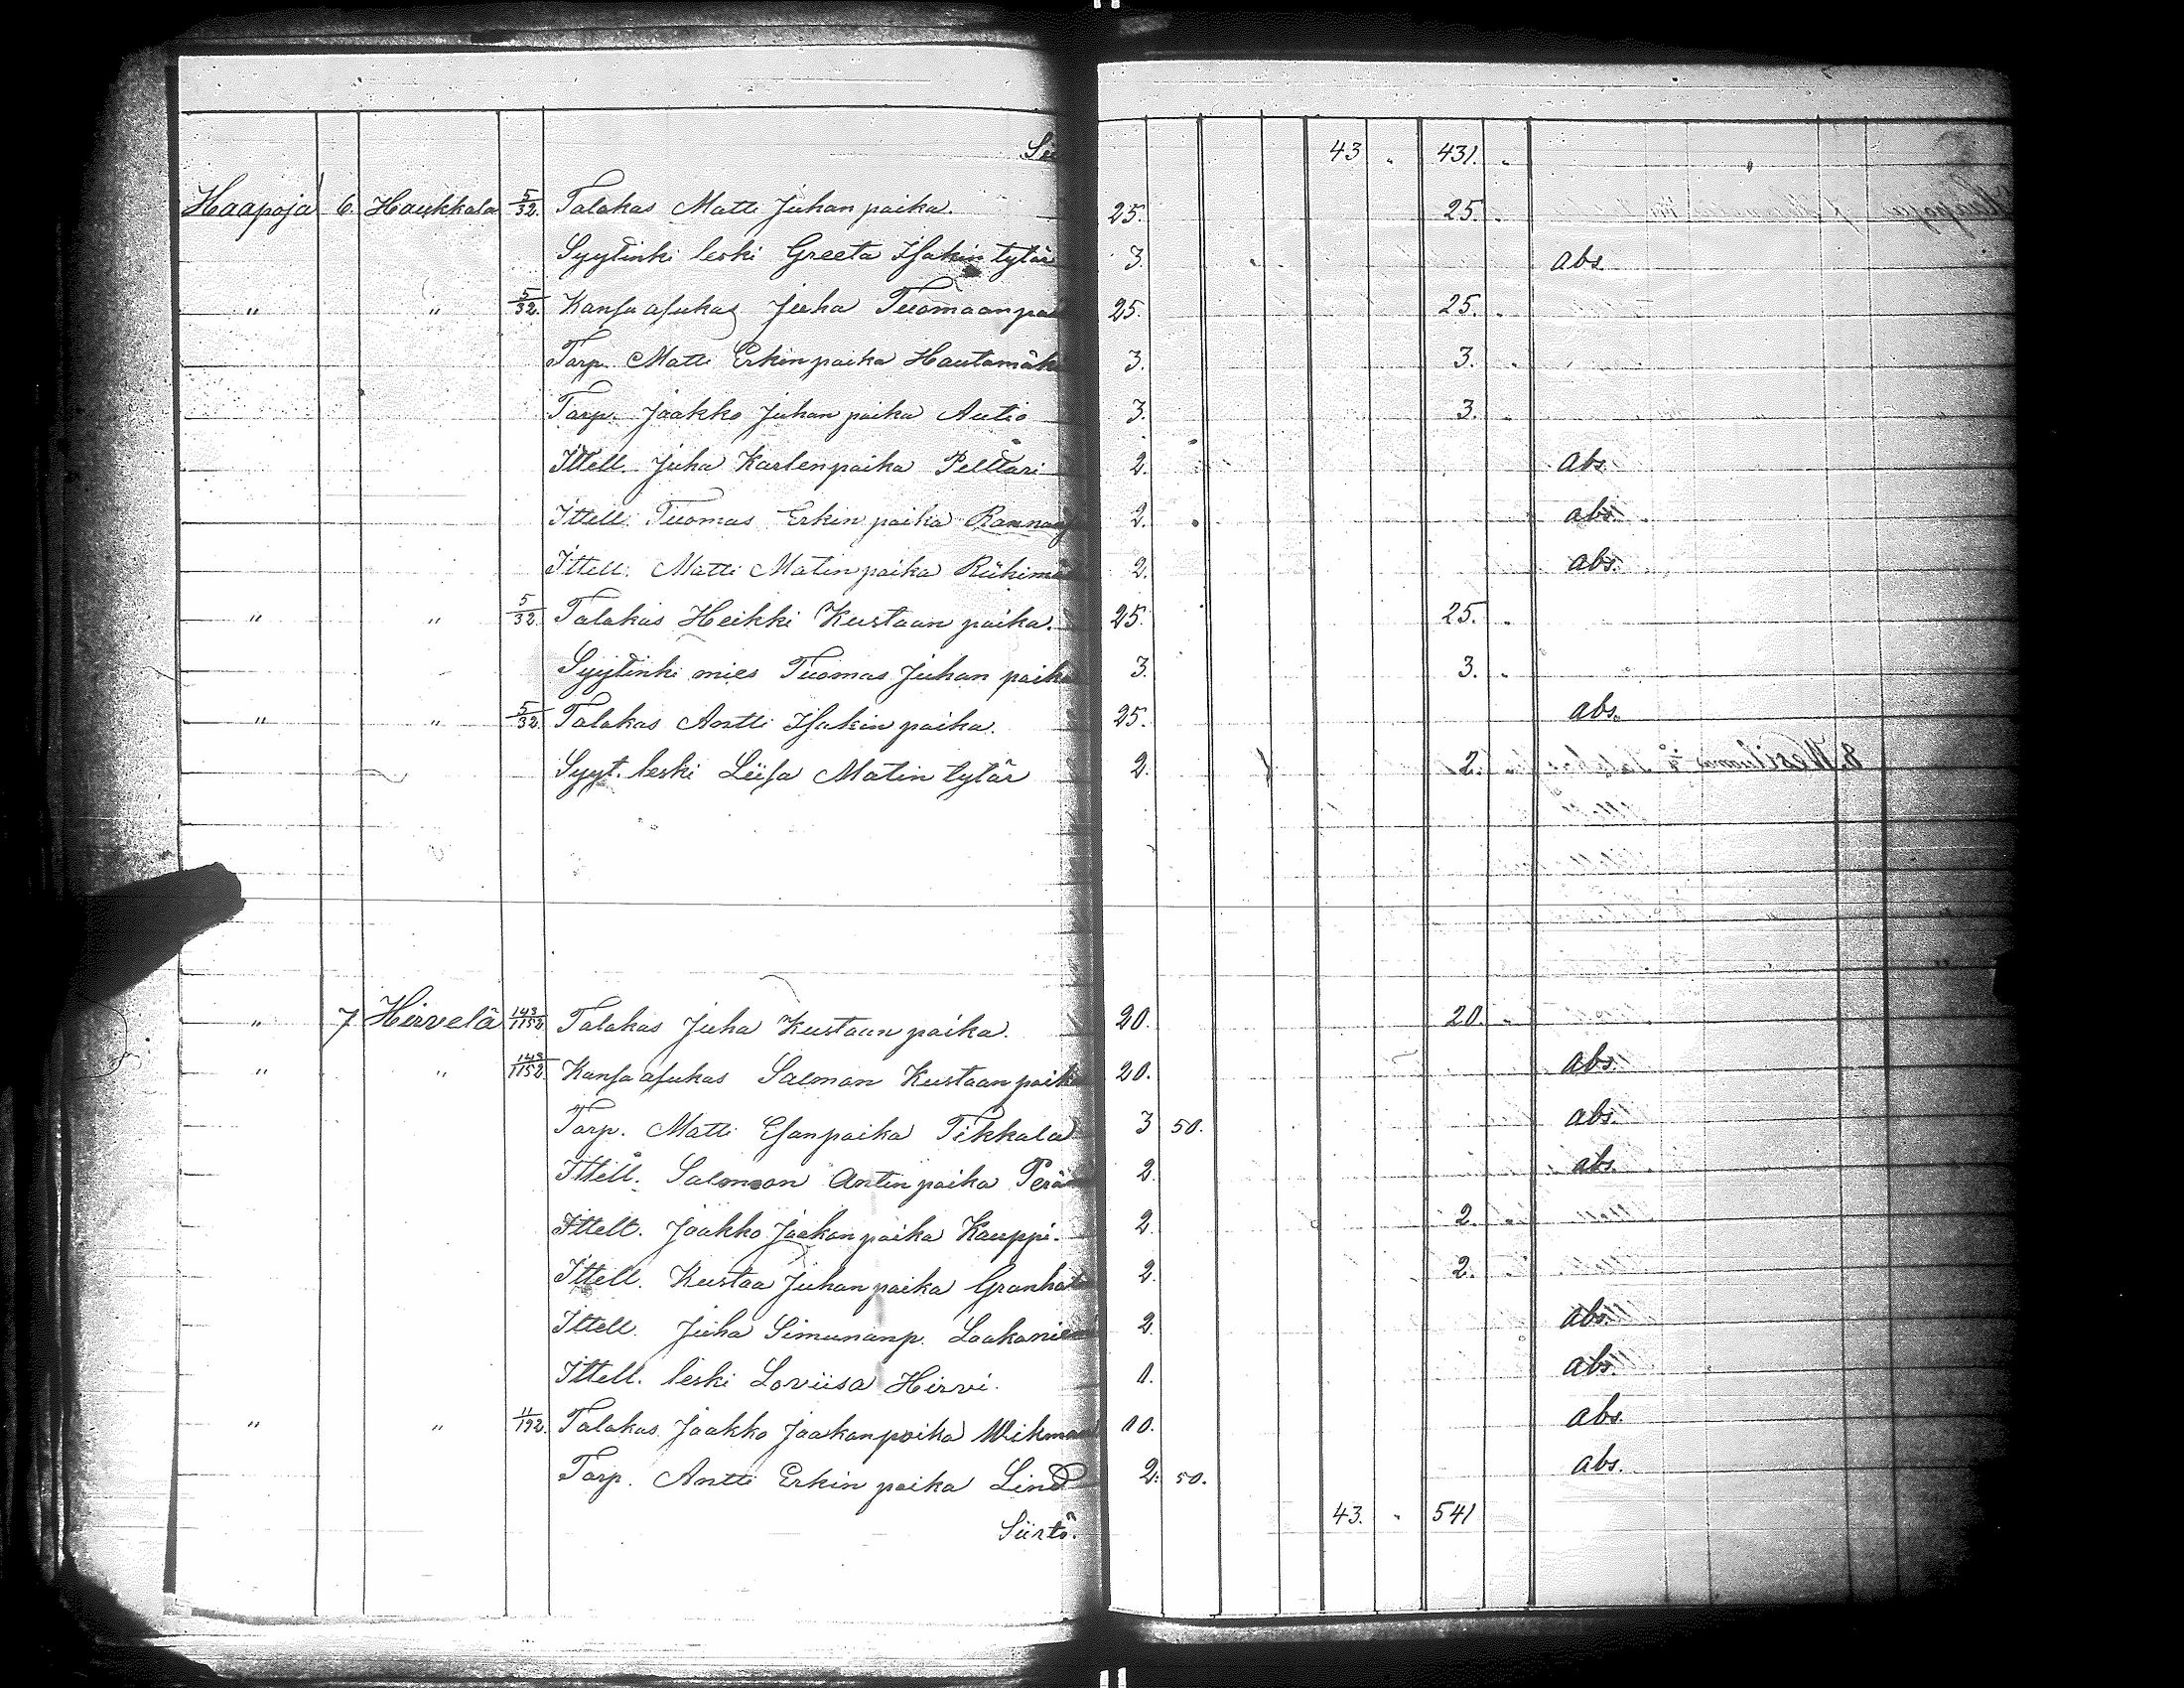 43 " 431. "
Haapoja 6. Haukkala 5/32. Talakas Matti Juhan poika. 25. 25. "
Syytinki leski Greeta Isakin tytär 3. abs.
" " 5/32. Kansa asukas Juha Tuomaan 25. 25. "
Torp. Matti Erkin poika 3. 3. "
Torp. Jaakko Juhan poika Autio 3. 3. "
Ittell. Juha Karlen poika Pelttari 2. abs.
Ittell. Tuomas Erkin poika 2. abs.
Ittell. Matti Matin poika 2. abs.
" " 5/32. Talakas Heikki Kustaan poika. 25. 25. "
Syytinki mies Tuomas Juhan poika 3. 3. "
" " 5/32. Talakas Antti Isakin poika. 25. abs.
Syyt. leski Liisa Matin tytär 2. 2. "
" 7 Hirvelä 143/1152. Talakas Juha Kustaan poika. 20. 20. "
" " 143/1152. Kansa asukas Salmon Kustaan poika 20. abs.
Torp. Matti Esan poika Tikkala 3 50. abs.
Ittell. Salomon Antin poika 2. abs.
Ittell. Jaakko Jaakon poika Kauppi. 2. 2. "
Ittell. Kustaa Juhan poika 2. 2. "
Ittell. Juha Simunanp. 2 abs.
Ittell. leski Loviisa Hirvi. 1. abs.
" " 11/192. Talakas Jaakko Jaakan poika 10. abs.
Torp. Antti Erkin poika Lind 2. 50. abs.
Siirtö. 43. " 541